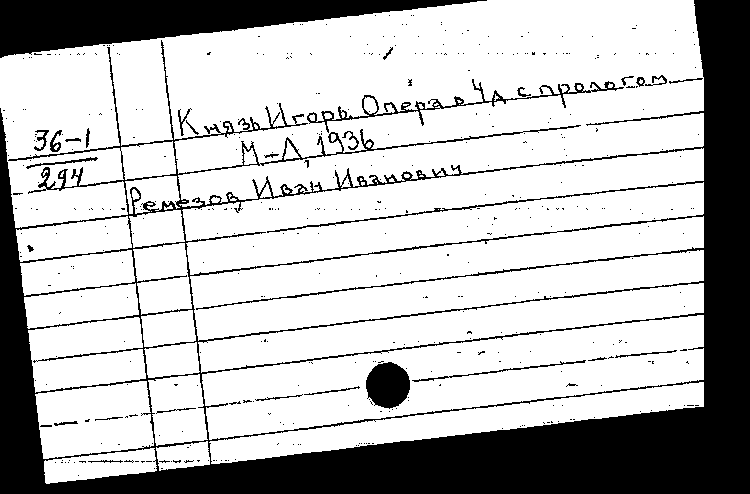 Князь Игорь. Опера в 4д с прологом
36-1
М-Л, 1936
294
Ремезов Иван Иванович